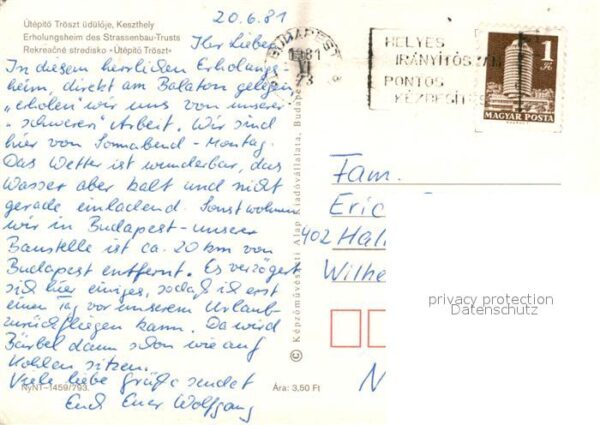 Útépítő Tröszt üdülője, Keszthely
Erholungsheim des Strassenbau-Trusts
Rekreačné stredisko «Útépítő Tröszt»
20.6.81
Ihr Lieben
In diesem herrlichen Erholungs-
heim, direkt am Balaton gelegen,
"erholen" wir uns von unserer
"schweren" Arbeit. Wir sind
hier von Sonnabend - Montag.
Das Wetter ist wunderbar, das
Wasser aber kalt und nicht
gerade einladend. Sonst wohnen
wir in Budapest - unsere
Baustelle ist ca. 20 km von
Budapest entfernt. Es verzögert
sich hier einiges, sodaß ich erst
einen Tag vor unserem Urlaub
zurückfliegen kann. Da wird
Bärbel dann schon wie auf
Kohlen sitzen.
Viele liebe Grüße sendet
Euch Euer Wolfgang
NyNT-1459/793.
Ára: 3,50 Ft
© Képzőművészeti Alap Kiadóvállalata, Budapest
BUDAPEST
1981
HELYES
IRÁNYÍTÓSZÁM
PONTOS
KÉZBESÍTÉS
1 Ft
MAGYAR POSTA
Fam.
Eric
402 Hall
Wilhe
privacy protection
Datenschutz